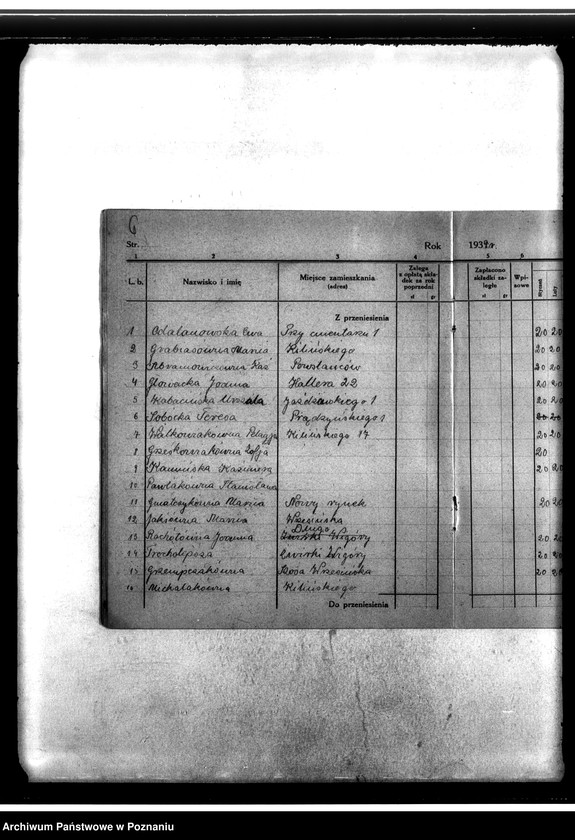 6
Str. Rok 1939 r.
1 2 3 4 5 6
L. b. Nazwisko i imię Miejsce zamieszkania (adres) Zalega z opłatą składek za rok poprzedni zł gr Zapłacono składki zaległe zł gr Wpisowe Styczeń Luty
Z przeniesienia
1 Odalanowska Ewa Przy cmentarzu 1 20 20
2 Grabiasówna Maria Kilińskiego 20 20
3 Powstańców 20 20
4 Głowacka Joanna Hallera 22 20 20
5 Kabacińska Urszula 1 20 20
6 Sobocka Teresa Prądzyńskiego 1 20 20
7 Walkowiakówna Pelagja Kilińskiego 17 20 20
8 Grześkowiakówna Zofja 20
9 Kamińska Kazimiera 20 20
10 Pawlakówna Stanisława
11 Maria Nowy rynek 20 20
12 Maria Wrzesińska
Długa
13 Joanna Wzgóry 20 20
14 Wzgóry 20 20
15 Grzempczakówna Szosa Wrzesińska 20 20
16 Michalakówna Kilińskiego
Do przeniesienia
Archiwum Państwowe w Poznaniu